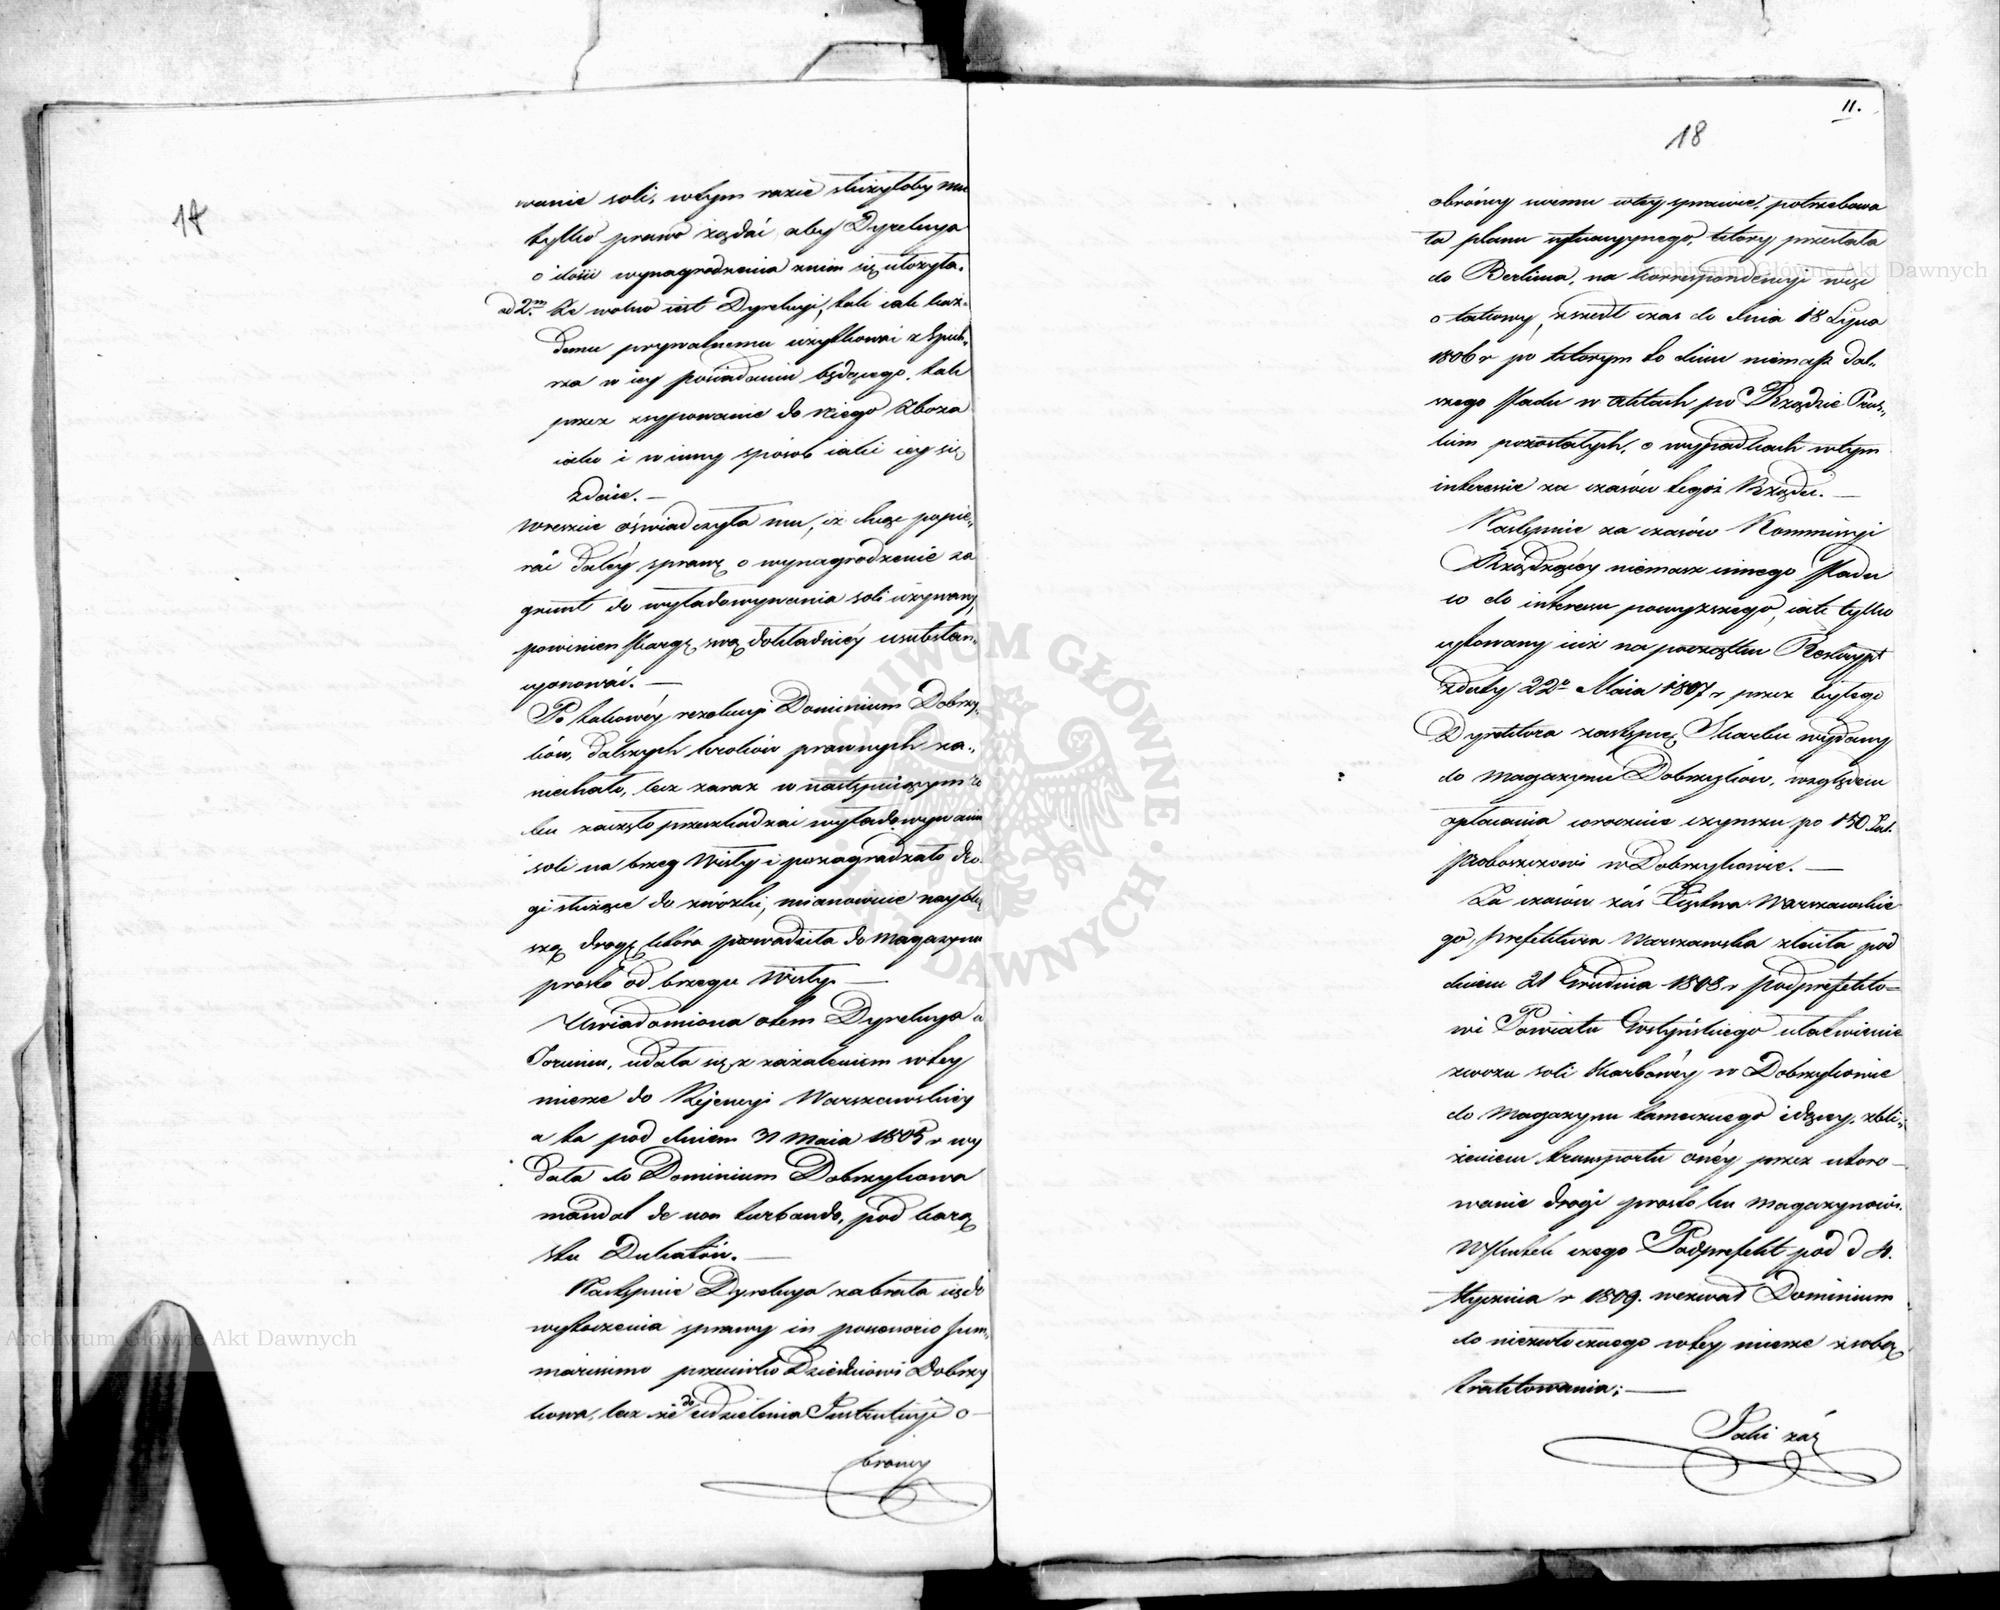 17
wanie soli, wtym razie służyłoby mu
tylko prawo żądać aby Dyrekcya
o ilość wynagrodzenia znim się ułożyła.
ad 2m. Że wolno iest Dyrekcyi, tak iak każ-
demu prywatnemu użytkować z Spich-
rza w iey posiadaniu będącego, tak
przez zsypowanie do niego Zboża
iako i w inny sposób iaki iey się
zdaie. —
Wreszcie oświadczyła mu, iż chcąc popie-
rać daléy sprawę o wynagrodzenie za
grunt do wyładowywania soli używany,
powinien skargę swą dokładniéy usubstan-
cyonować. —
Po takowéy rezolucyi Dominium Dobrzy-
ków, dalszych kroków prawnych za-
niechało, lecz zaraz w następuiącym ro
ku zaczęło przeszkadzać wyładowywaniu
soli na brzeg Wisły i pozagradzało dro
gi służące do zwózki, mianowicie naybliż
szą drogę która prowadziła do Magazynu
prosto od brzegu Wisły. —
Uwiadomiona otem Dyrekcya w
Toruniu, udała się z zażaleniem wtey
mierze do Rejencyi Warszawskiéy
a ta pod dniem 31 Maia 1805 r wy
dała do Dominium Dobrzykowa
mandat de non turbando, pod karą
stu Dukatów. —
Następnie Dyrekcya zabrała się do
wytoczenia sprawy in possesorio sum-
mariissimo przeciwko Dziedzicowi Dobrzy
kowa, lecz że do udzielenia Instrukcyi o-
brońcy
11.
18
obrońcy swemu wtey sprawie, potrzebowa
ła planu sytuacyynego, który przesłała
do Berlina, na korrespondencyi więc
o takowy, zszedł czas do dnia 18 Lipca
1806 r po którym to dniu niemasz dal-
szego śladu w aktach po Rządzie Prus-
kim pozostałych, o wypadkach wtym
interessie za czasów tegoż Rządu. —
Następnie za czasów Kommissyi
Rządzącéy niemasz innego śladu
co do interesu powyższego, iak tylko
cytowany iuż na początku Reskrypt
z daty 22o Maia 1807 r przez byłego
Dyrektora zastępcę Skarbu wydany
do Magazynu Dobrzyków, względem
opłacania corocznie czynszu po 150 Tal.
proboszczowi w Dobrzykowie. —
Za czasów zaś Xięstwa Warszawskie
go, Prefektura Warszawska zleciła pod
dniem 21 Grudnia 1808 r Podprefekto=
wi Powiatu Gostyńskiego ułatwienie
zwozu soli skarbowéy w Dobrzykowie
do Magazynu tamecznego idącey, zbli-
żeniem transportu onéy przez utoro-
wanie drogi prosto ku Magazynowi.
Wskutek czego Podprefekt pod d 4.
Stycznia r 1809. wezwał Dominium
do niezwłocznego wtey mierze z sobą
traktowania; —
Jaki zaś
Archiwum Główne Akt Dawnych
Archiwum Główne Akt Dawnych
ARCHIWUM GŁÓWNE AKT DAWNYCH